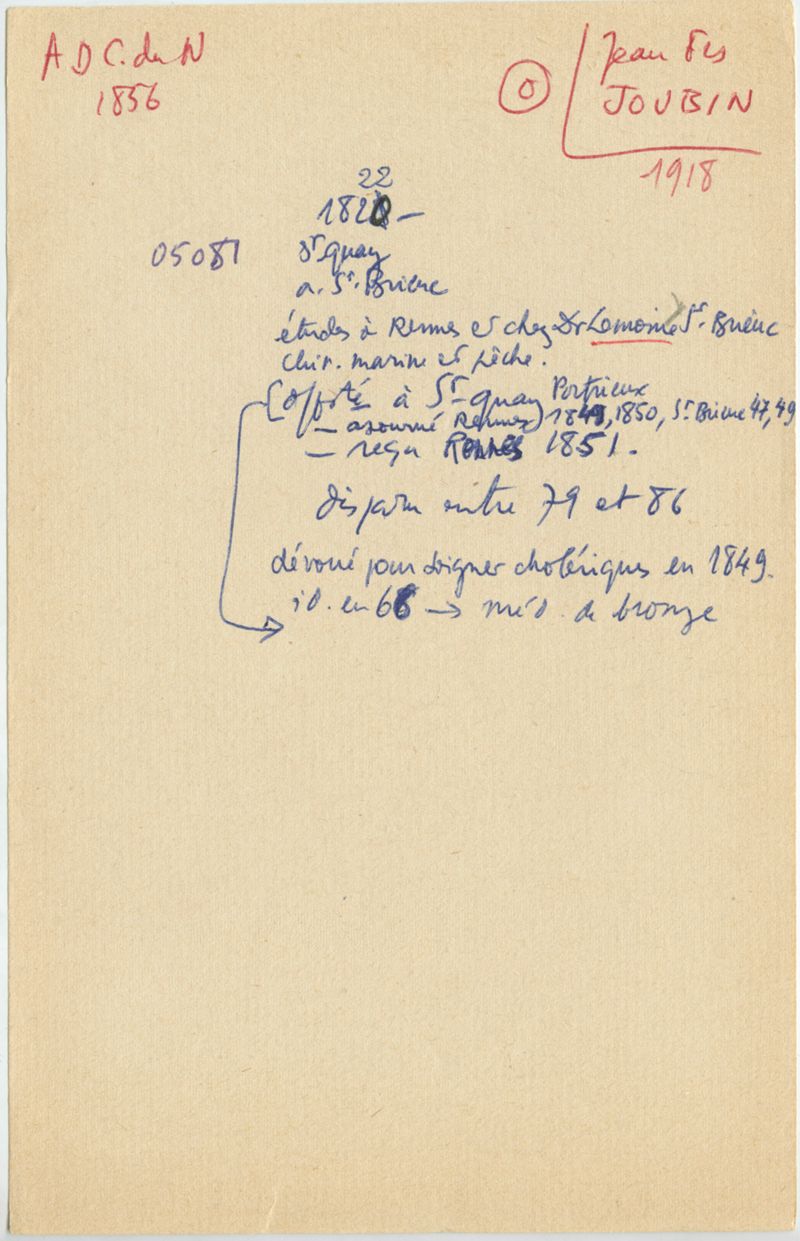 A D C. du N
1856
O
Jean Fçs
JOUBIN
1918
22
1820 –
05081
St quay
a. St. Brieuc
études à Rennes et chez Dr Lemoine St. Brieuc
chir. marine et pêche.
à St-quay Portrieux
– ajourné Rennes) 1849, 1850, St Brieuc 47, 49
– reçu Rennes 1851.
disparu entre 79 et 86
dévoué pour soigner cholériques en 1849.
id. en 66 → méd. de bronze